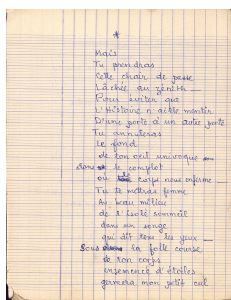 *
Mais
Tu prendras
Cette chair de peste
Lâchée au zénith
Pour éviter que
L'Histoire n'aille mentir
D'une porte à un autre porte
Tu annuleras
Le fond
de ton œil univoque
dans le complot
où corps nous enferme
Tu te mettras femme
Au beau milieu
de l'isolé sommeil
dans un songe
qui dit tous les yeux
Sous la folle course
de ton corps
ensemencé d'étoiles
germera mon petit